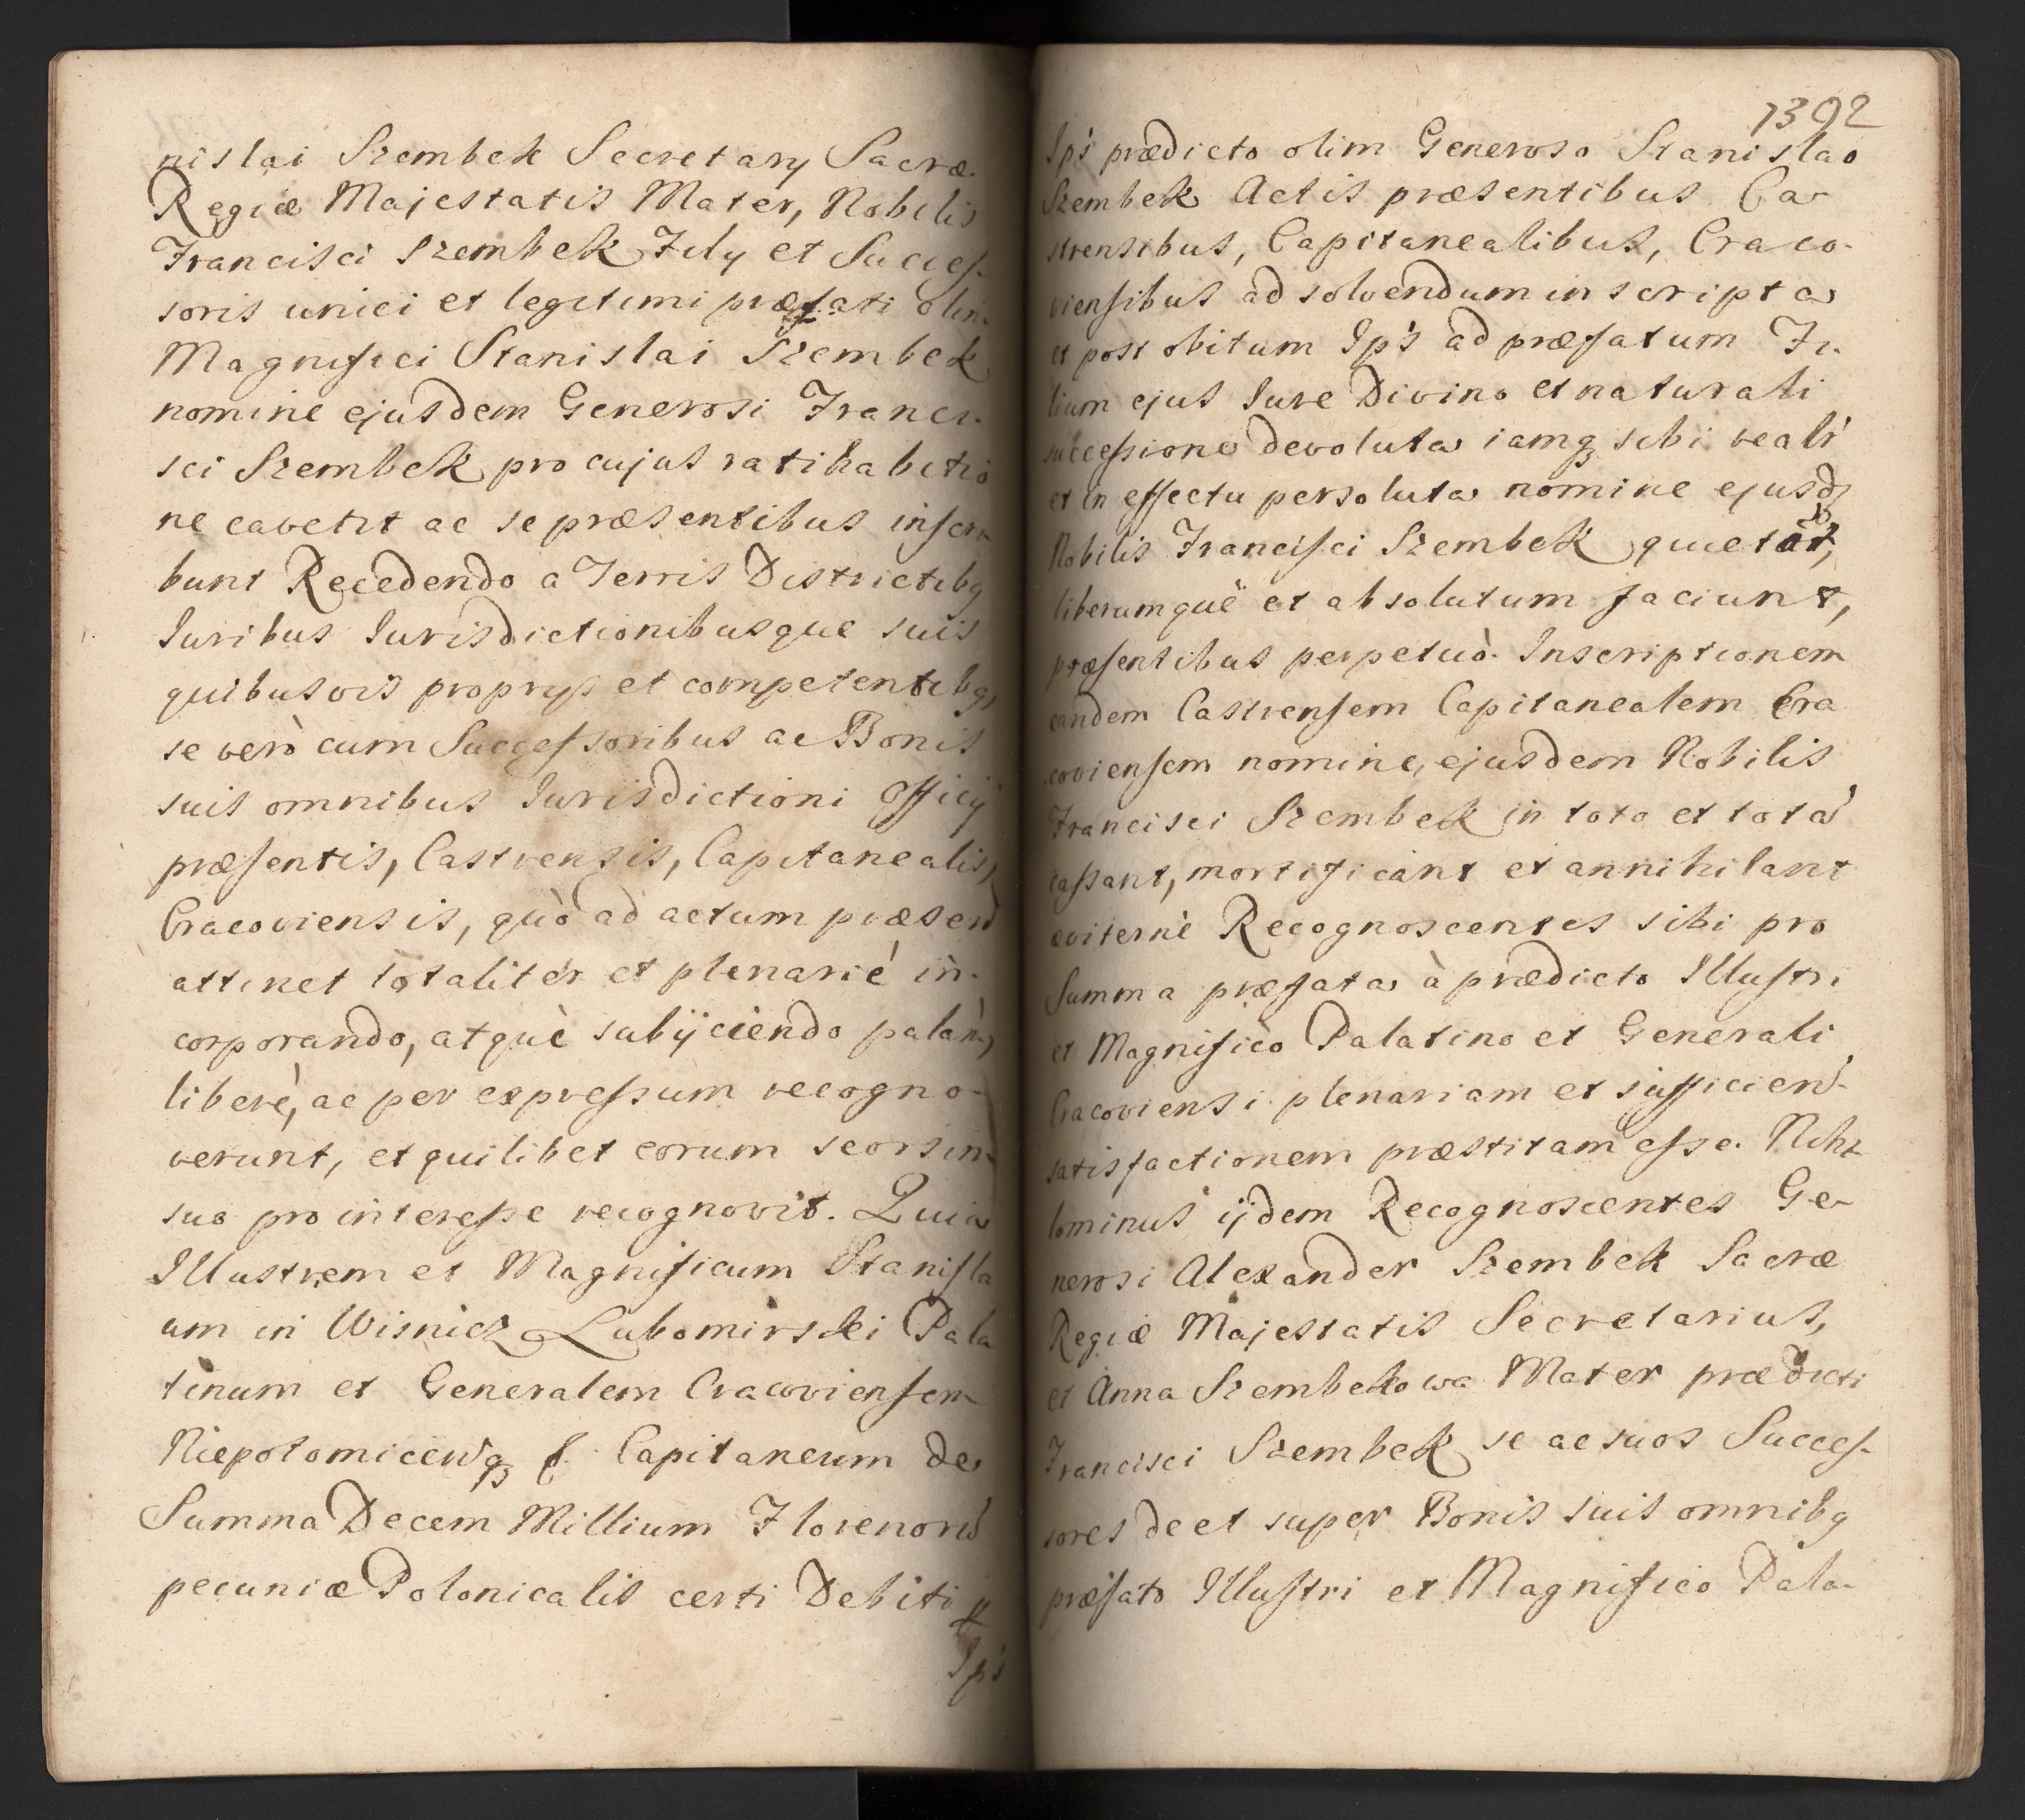 nislai Szembek Secretarij Sacræ
Regiæ Majestatis Mater, Nobilis
Francisci Szembek Filij et Succes-
soris unici et legitimi præfati olim
Magnifici Stanislai Szembek
nomine ejusdem Generosi Franci-
sci Szembek pro cujus ratihabitio
ne cavetit ac se præsentibus inscri
bunt Recedendo a Terris Districtibq
Iuribus Iurisdictionibusque suis
quibusvis proprijs et competentibq,
se verò cum Successoribus ac Bonis
suis omnibus Iurisdictioni Officij
præsentis, Castrensis, Capitanealis,
Cracoviensis, quò ad actum præsen
attinet totalitér et plenarié in-
corporando, atquè subijciendo palàm,
liberè, ac per expressum recogno-
verunt, et quilibet eorum seorsim
suo pro interesse recognovit. Quia
Illustrem et Magnificum Stanisla
um in Wisnicz Lubomirski Pala
tinum et Generalem Cracoviensem
Niepolomicen̄qȝ Capitaneum de
Summa Decem Millium Florenorū
pecuniæ Polonicalis certi Debiti
Ips
1392
Ips prædicto olim Generoso Stanislao
Szembek Actis præsentibus Ca-
strensibus, Capitanealibus, Craco-
viensibus ad solvendum inscripta
et post obitum Ips ad præfatum Fi-
lium ejus Iure Divino et naturali
successione devoluta iamqȝ sibi reali
et in effectu persoluta nomine ejusdȝ
Nobilis Francisci Szembek quietāt,
liberumquè et absolutum faciunt,
præsentibus perpetuò. Inscriptionem
eandem Castrensem Capitanealem Cra
coviensem nomine, ejusdem Nobilis
Francisci Szembek in toto et totâ
cassant, mortificant et annihilant
eviternè Recognoscentes sibi pro
Summa præfata à prædicto Illustri
et Magnifico Palatino et Generali
Cracoviensi plenariam et sufficien̄-
satisfactionem præstitam esse. Nihi
lominus ijdem Recognoscentes Ge-
nerosi Alexander Szembek Sacræ
Regiæ Majestatis Secretarius,
et Anna Szembekowa Mater prædicti
Francisci Szembek se ac suos Succes-
sores de et super Bonis suis omnibq
præfato Illustri et Magnifico Pala-